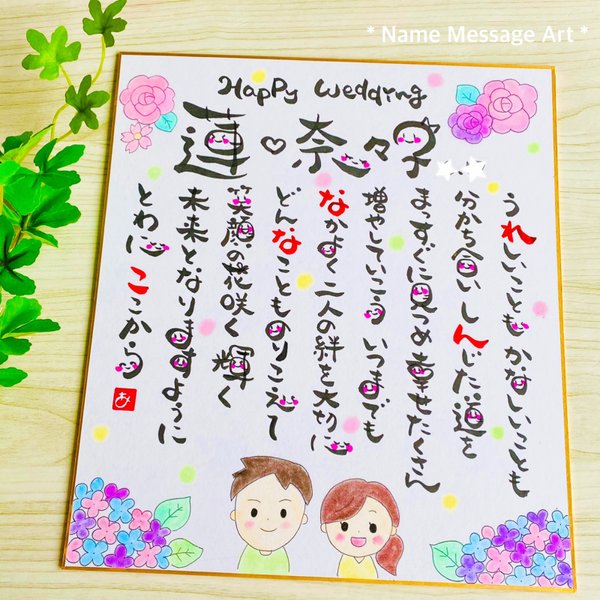 * Name Message Art *
Happy Wedding
蓮♡奈々子
うれしいことも かなしいことも
分かち合い しんじた道を
まっすぐに見つめ 幸せたくさん
増やしていこう いつまでも
なかよく二人の絆を大切に
どんなことものりこえて
笑顔の花咲く 輝く
未来となりますように
とわに ここから